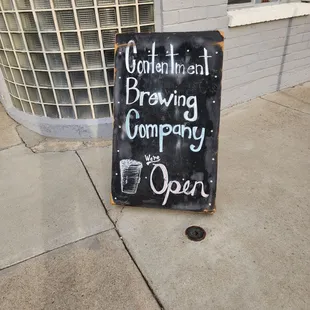 Contentment
Brewing
Company
We're
Open